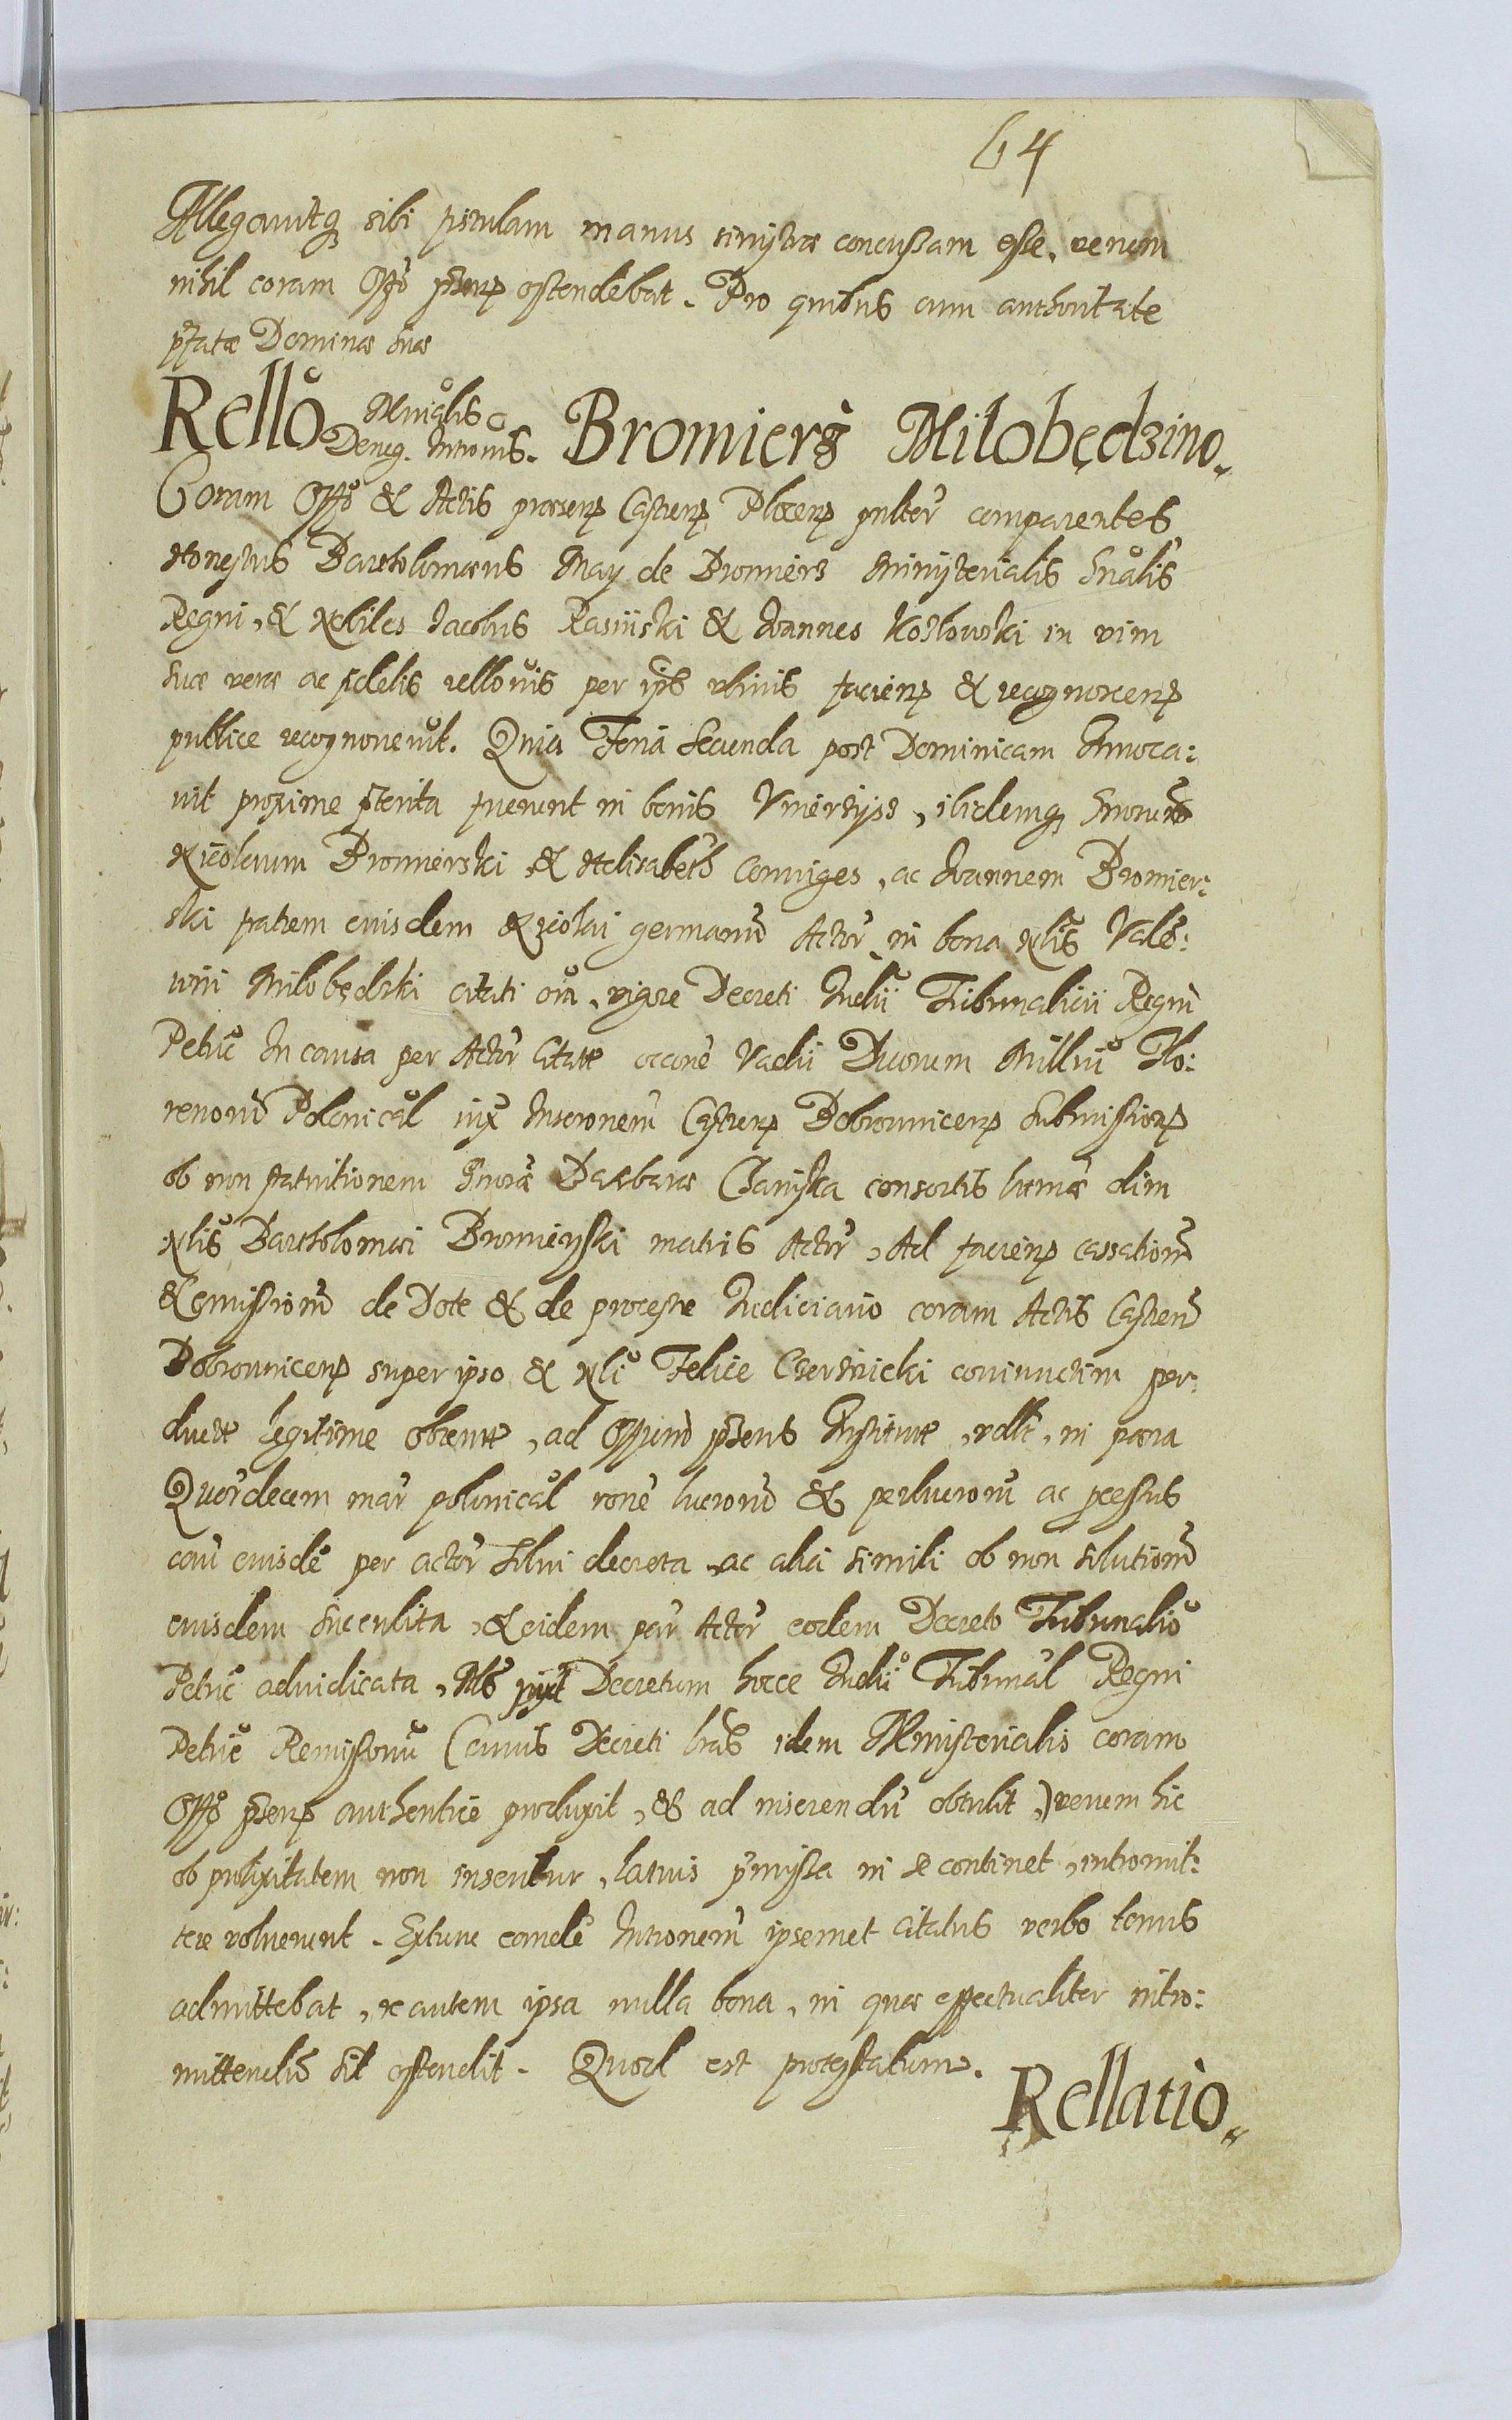 64
Allegavitq3 sibi pistulam manus sinistræ concussam esse, verum
nihil coram Offo pñsenp ostendebat. Pro quibus cum authoritate
pfatæ Dominæ suæ
Rello Mnialis Deneg. Intronis. Bromiers Miłobędzino.
Coram Offo & Actis præsenp Castrenp Plocenp psnlter comparentes
Honestus Bartholomæus May de Bromierz Ministerialis Gnalis
Regni, & Nobiles Jacobus Rasiński & Joannes Kosłowski in vim
suæ veræ ac fidelis rellonis per ipś vltimis facienp & recognoscenp
publice recognoverūt. Quia Feria Secunda post Dominicam Invoca:
vit proxime pterita fuerunt in bonis Vmierziyss, ibidemq3 Gnorum
Nicolaum Bromierski & Helisabeth coniuges, ac Joannem Bromier:
ski fratrem eiusdem Nicolai germanū Actor in bona nlis Vale:
riani Miłobędzki citati oia, vigore Decreti Judii Tribunalicii Regni
Petric In causa per Actor citatæ occone Vadii Duorum Milliū Flo:
renorū Polonical iux Inscronem Castrenp Dobrzynicenp Submissionp
ob non statuitionem Gnoræ Barbaræ Chanska consortis primæ olim
Nlis Bartholomæi Bromierski matris Actor, Ad facienp cassationē
& omissionē de Dote & de processu Judiciario coram Actis Castren
Dobrzynicenp super ipso & nli Felice Czerznicki coniunctim per:
ductæ legitime obtentæ, ad Officiū psens Institutæ, vdlt, in pæna
Quordecem mar polonical rone lucrorū & perlucrorū ac pcessus
cau eiusdē per actor solui decreta, ac alia simili ob non solutionē
eiusdem succubita, & eidem par Actor eodem Decreto Tribunalio
Petric adiudicata, Als iuxt Decretum hocce Judii Tribunal Regni
Petric Remissonū (cuius Decreti lras idem Ministerialis coram
Offo psenp authentice produxit, & ad inserendū obtulit,) verum hic
ob prolixitatem non inseritur, latius pmissa in se continet, intromit:
tere voluerunt. Extunc eandē Intronem ipsemet citatus verbo tenus
admittebat, re autem ipsa nulla bona, in quæ effectualiter intro:
mittendū sit ostendit. Quod est protestatum.
Rellatio